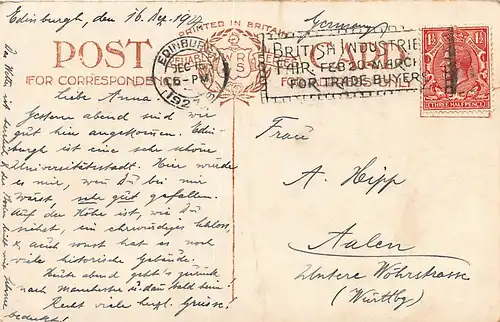 Edinburgh, den 16. Dez. 1924
Germany
PRINTED IN BRITAIN
POST
CARD
FOR CORRESPONDENCE
FOR ADDRESS ONLY
EDINBURGH
6-PM
1924
BRITISH INDUSTRIES
FAIR FEB 20-MARCH
FOR TRADE BUYERS
THREE HALFPENCE
Liebe Anna.
Gestern abend sind wir
gut hier angekommen. Edin-
burgh ist eine sehr schöne
Universitätsstadt. Hier würde
es mir, wenn Du bei mir
wärst, sehr gut gefallen.
Auf der Höhe ist, wie Du
siehst, ein ehrwürdiges Schloss,
& auch sonst hat es noch
viele historische Gebäude.
Heute abend geht's zurück
nach Manchester u. dann bald heim!
Recht viele herzl. Grüsse!
Frau
A. Hipp
Aalen
Untere Wöhrstrasse
(Württbg)
Das Wetter ist herrlich & der Boden